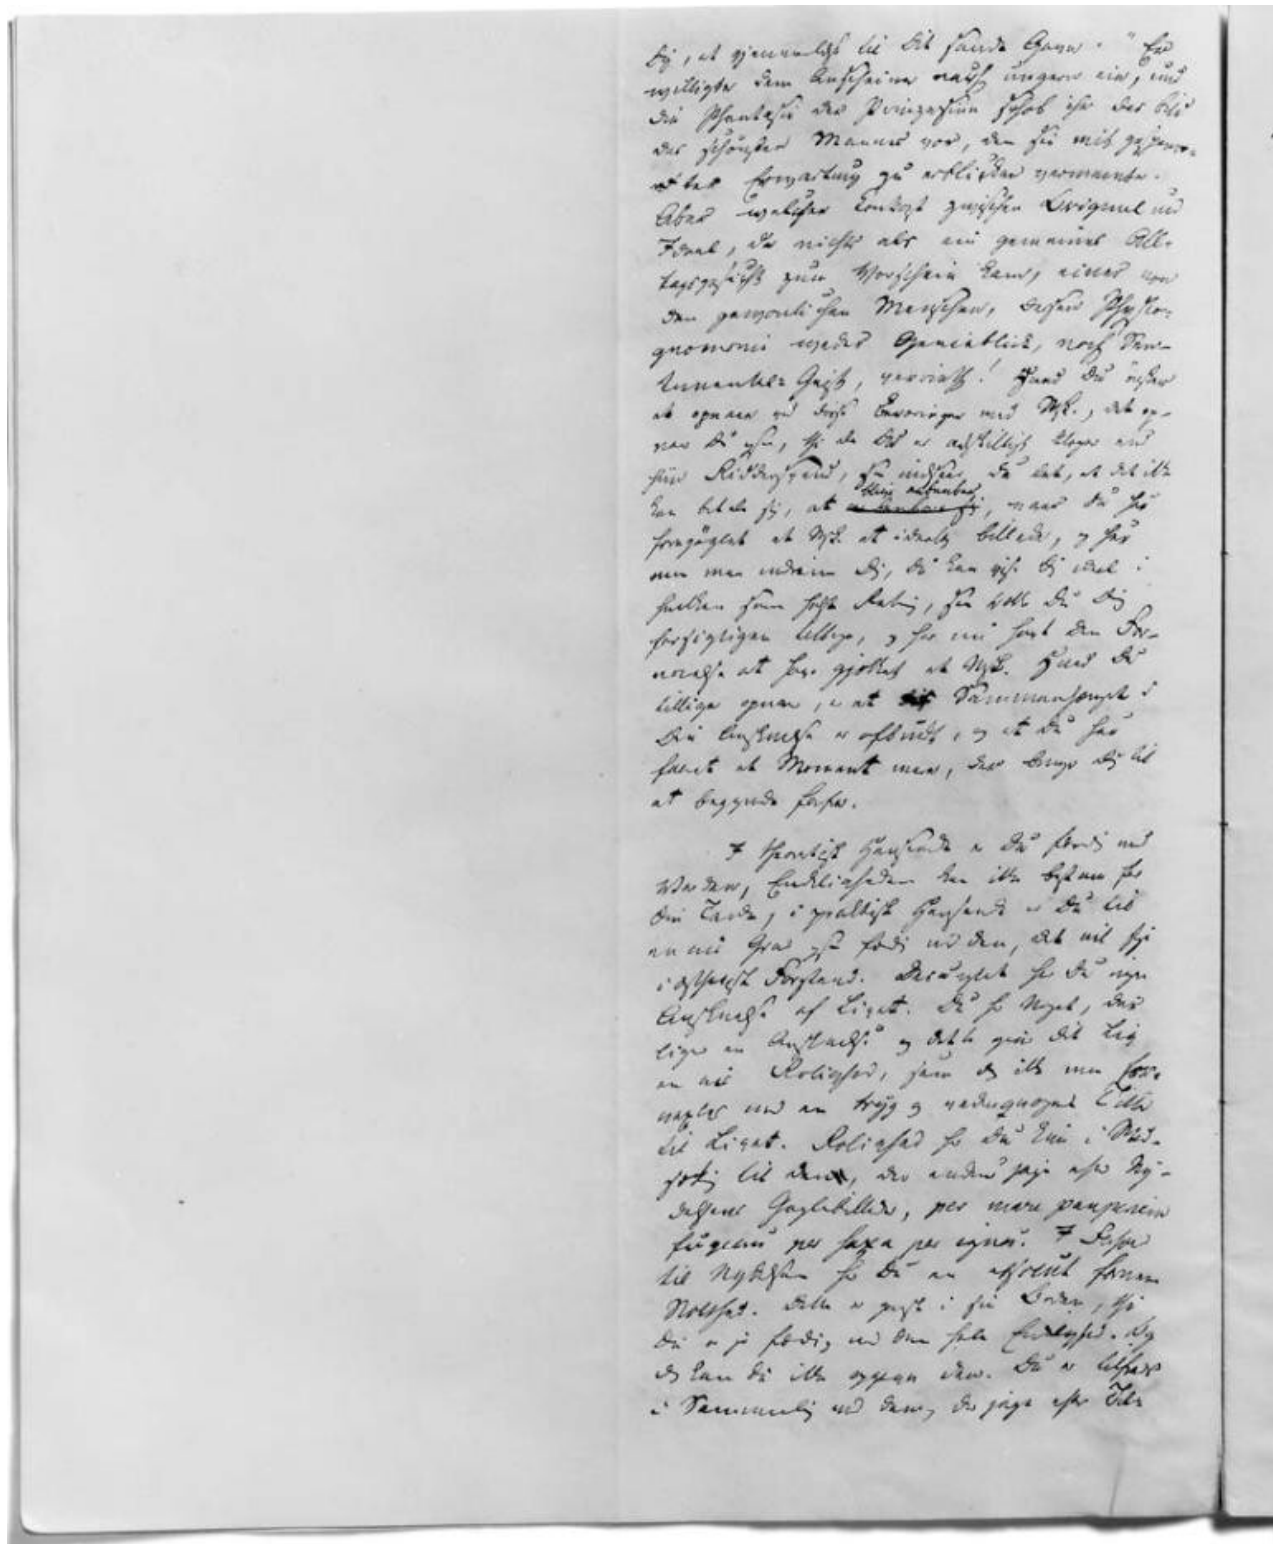 Dig, et til Dit sande Gavn. " Er
willigte dem Anscheine nach ungern ein, und
die Phantasie der Prinzessin schob ihr das Bild
des schönsten Mannes vor, den sie mit gespann-
ter Erwartung zu erblicken vermeinte.
Aber welcher Contrast zwischen Original und
Ideal, da nichts als ein gemeines All-
tagsgesicht zum Vorschein kam, einer von
den gewönlichen Menschen, dessen Physio-
gnomonie weder Genieblick, noch Sen-
timental- Geist, verrieth! Hvad Du ønsker
at opnaae ved disse Berøringer med Msk., det op-
naaer Du ogsaa, thi da Du er adskilligt kloger end
hiin Ridderspund, saa indseer Du let, at det ikke
kan betale sig, at blive aabenbar, naar Du har
foregøglet et Msk. et idealt billede, og her
maa man indrømme Dig, Du kan vise Dig ideal i
hvilken som helst Retning, saa Du Dig
forsigtigen tilbage, og har nu havt den For-
nøielse at have gjækket et Msk. Hvad Du
tillige opnaaer, er at Sammenhænget i
Din Anskuelse er afbrudt, og at Du har
faaet et Moment mere, der bringer Dig til
at begynde forfra.
I theoretisk Henseende er Du færdig med
Verden, Endeligheden kan ikke bestaae for
Din Tanke, i praktisk Henseende er Du til
en vis Grad ogsaa færdig med den, det vil sige
i æsthetisk Forstand. Desuagtet har Du ingen
Anskuelse af Livet. Du har Noget, der
ligner en Anskuelse og dette giver dit Liv
en vis Rolighed, som dog ikke maa for-
vexles med en tryg og vederqvægende Tillid
til Livet. Rolighed har Du kun i Mod-
sætning til den, der endnu jager efter Ny-
delsens Gøglebilleder, per mare pauperiem
fugiens per saxa per ignes. I Forhold
til Nydelsen har Du en absolut fornem
Stolthed. Dette er ganske i sin Orden, thi
Du er jo færdig med den hele Endelighed. Og
dog kan du ikke opgive den. Du er tilfreds
i Sammenligning med dem, der jage efter Til-